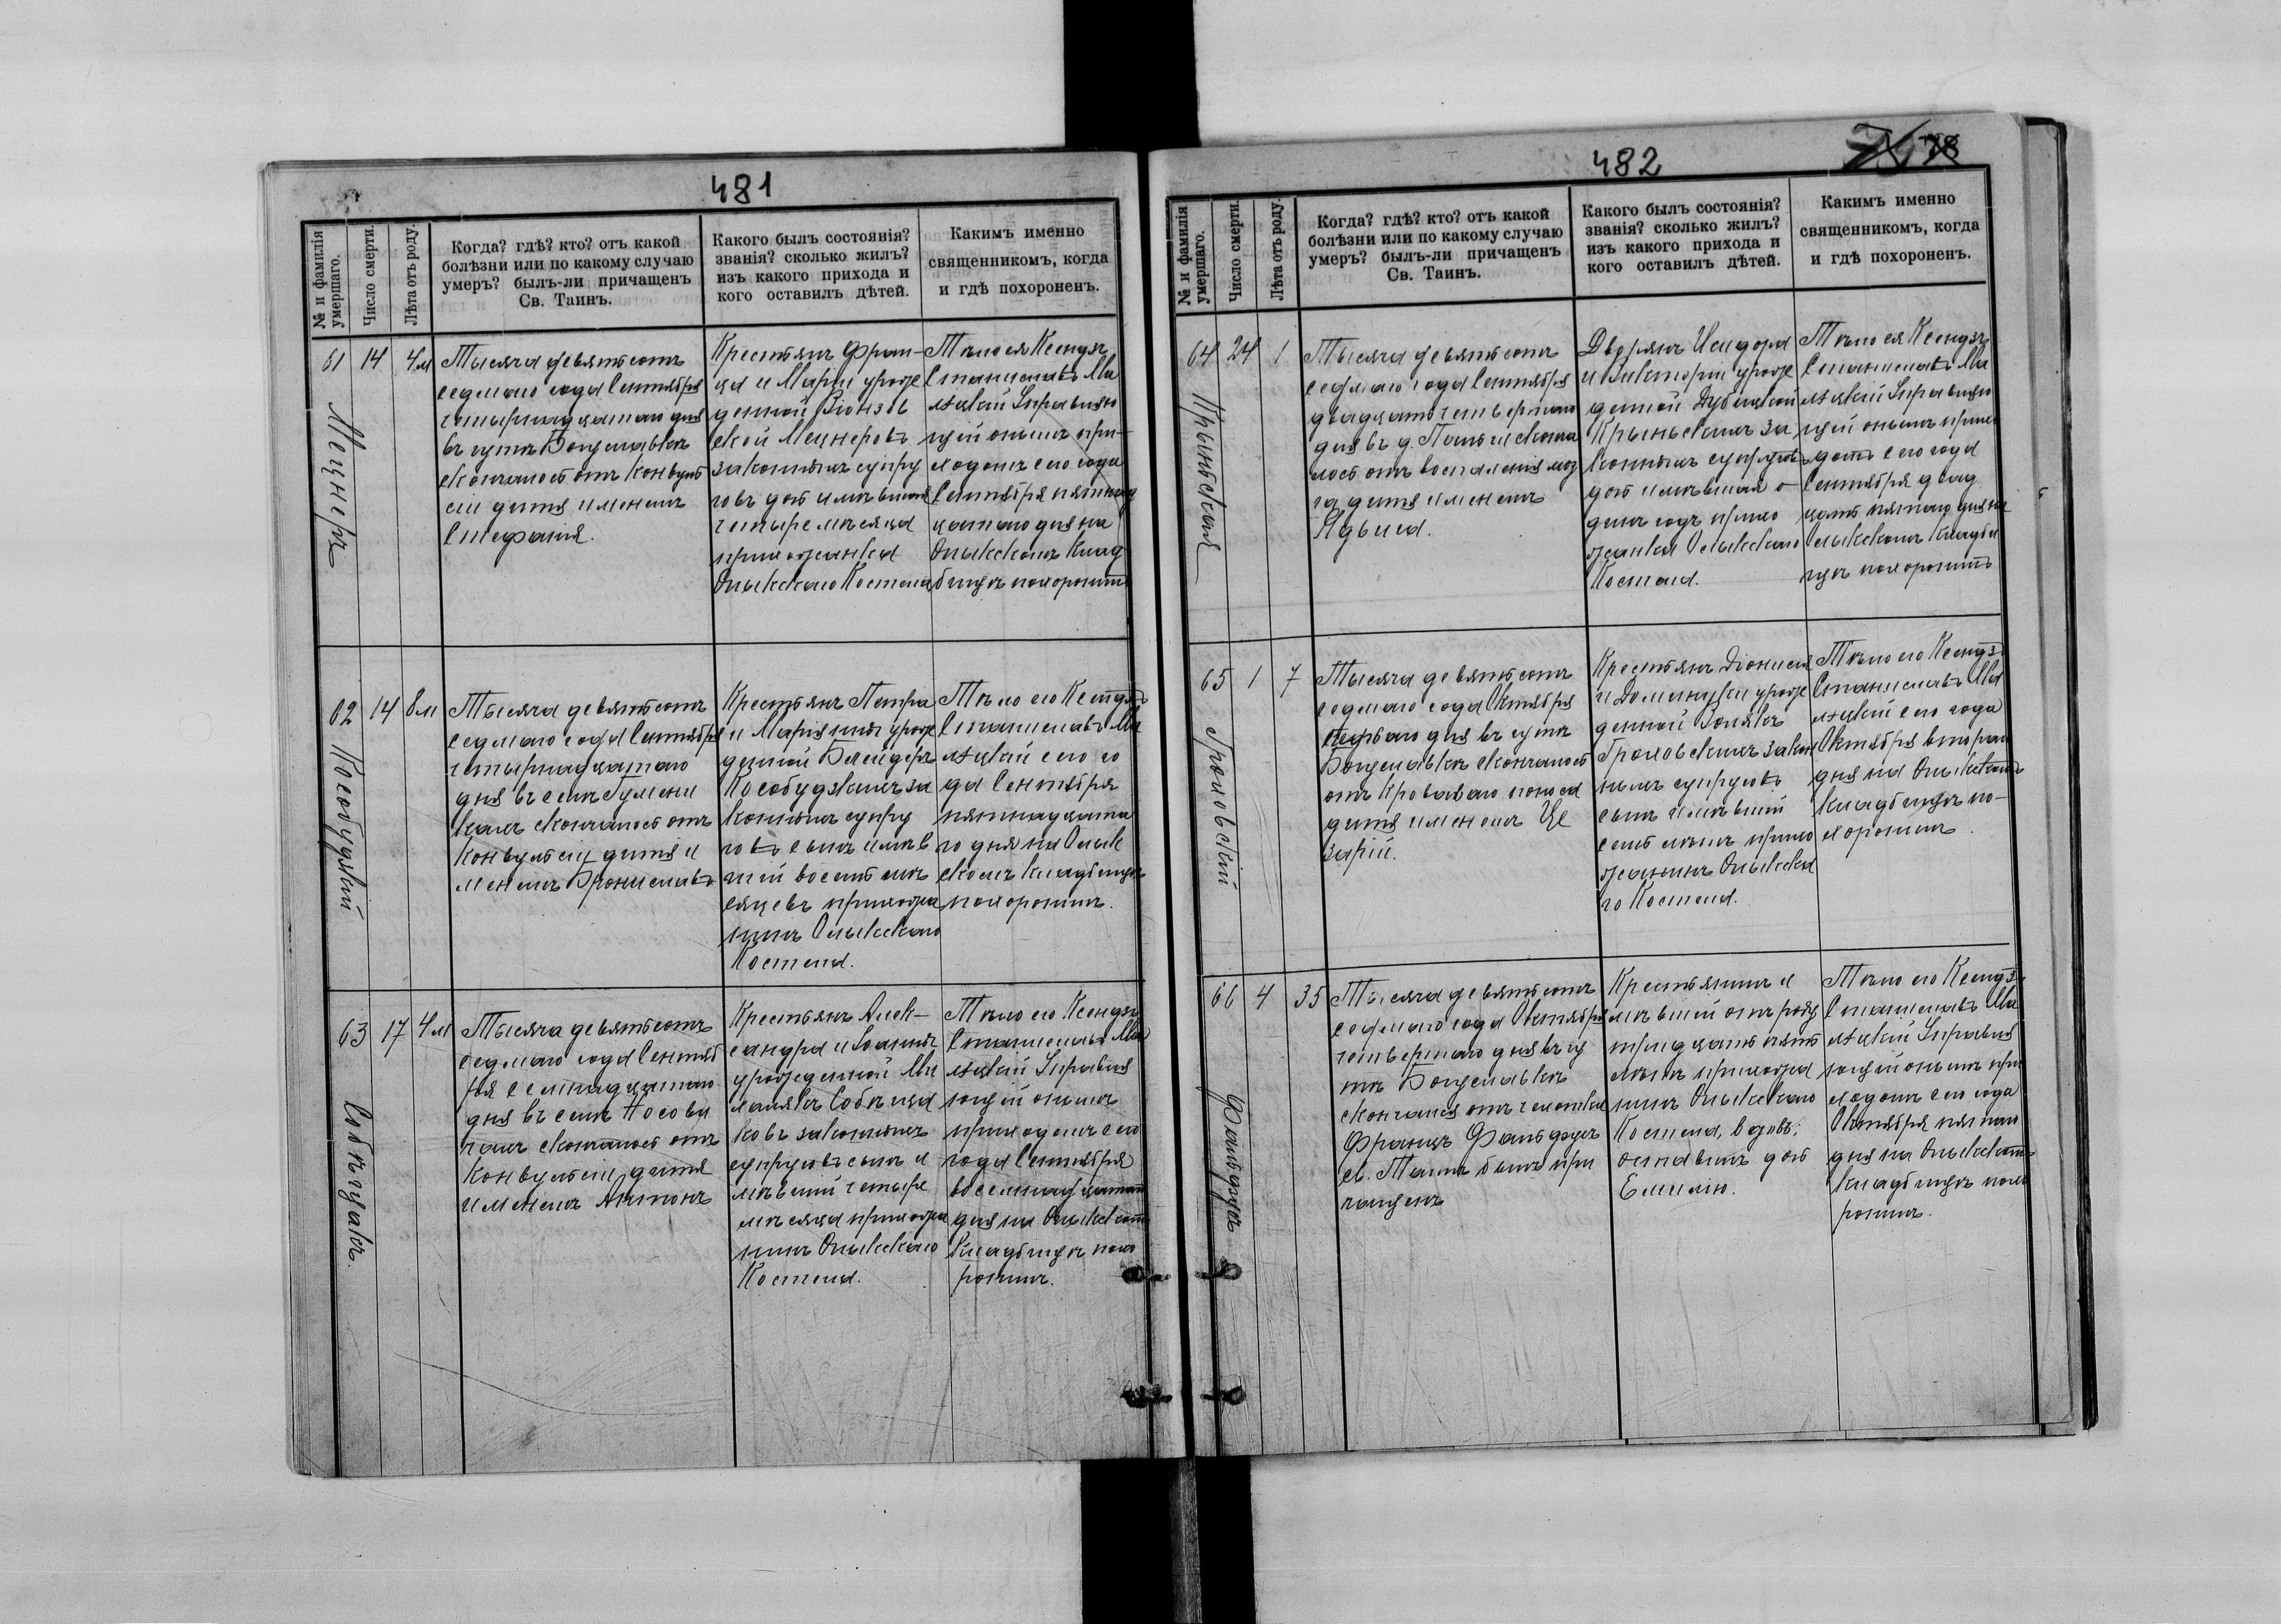 481
№ и фамилія умершаго.
Число смерти.
Лѣта отъ роду.
Когда? гдѣ? кто? отъ какой
болѣзни или по какому случаю
умеръ? былъ-ли причащенъ
Св. Таинъ.
Какого былъ состоянія?
званія? сколько жилъ?
изъ какого прихода и
кого оставилъ дѣтей.
Какимъ именно
священникомъ, когда
и гдѣ похороненъ.
61
Мецнеръ
14
4 м
Тысяча девятьсотъ
седмаго года Сентября
четырнадцатаго дня
въ гутѣ Боцеславкѣ
скончалось отъ конвуль
сіи дитя именемъ
Стефанія.
Крестьянъ Фран-
ца и Маріи урож
денной
ской Мецнеровъ
законныхъ супру
говъ дочь имѣвшая
четыре мѣсяца
прихожанка
Олыкскаго Костела
Тѣло ея Ксендзъ
Станиславъ Ма
лѣцкій Управляю
щій онымъ при-
ходомъ сего года
Сентября пятнад
цатаго дня на
Олыкскомъ Клад
бищѣ похоронилъ
62
Кособудзкій
14
8 м
Тысяча девятьсотъ
седмаго года Сентября
четырнадцатаго
дня въ селѣ Гумени
кахъ скончалось отъ
конвульсіи дитя и
менемъ Брониславъ
Крестьянъ Петра
и Маріянны урож
денной Бейгеръ
Кособудзкихъ за
конныхъ супру
говъ сынъ имѣв
шій восемь мѣ
сяцевъ прихожа
нинъ Олыкскаго
Костела.
Тѣло его Ксендзъ
Станиславъ Ма
лѣцкій сего го
да Сентября
пятнадцата
го дня на Олык
скомъ кладбищѣ
похоронилъ.
63
Собѣщакъ.
17
4 м
Тысяча девятьсотъ
седмаго года Сентяб
ря семнадцатаго
дня въ селѣ Носови
чахъ скончалось отъ
конвульсіи дитя
именемъ Антонъ
Крестьянъ Алек-
сандра и Іоанны
урожденной Ми
халякъ Собѣща
ковъ законныхъ
супруговъ сынъ и
мѣвшій четыре
мѣсяца прихожа
нинъ Олыкскаго
Костела.
Тѣло его Ксендзъ
Станиславъ Ма
лѣцкій Управля
ющій онымъ
приходомъ сего
года Сентября
восемнадцатаго
дня на Олыкскомъ
Кладбищѣ похо
ронилъ.
482
78
№ и фамилія умершаго.
Число смерти.
Лѣта отъ роду.
Когда? гдѣ? кто? отъ какой
болѣзни или по какому случаю
умеръ? былъ-ли причащенъ
Св. Таинъ.
Какого былъ состоянія?
званія? сколько жилъ?
изъ какого прихода и
кого оставилъ дѣтей.
Какимъ именно
священникомъ, когда
и гдѣ похороненъ.
64
Крыньская
24
1
Тысяча девятьсотъ
седмаго года Сентября
двадцать четвертаго
дня въ д. сконча
лось отъ воспаленія моз
га дитя именемъ
Ядвига.
Дворянъ Исидора
и Викторіи урож
денной Дубицкой
Крыньскихъ за
конныхъ супруговъ
дочь имѣвшая о-
динъ годъ прихо
жанка Олыкскаго
Костела.
Тѣло ея Ксендзъ
Станиславъ Ма
лѣцкій Управляю
щій онымъ прихо
домъ сего года
Сентября двад
цать пятаго дня на
Олыкскомъ Кладби
щѣ похоронилъ
65
Гроховскій
1
7
Тысяча девятьсотъ
седмаго года Октября
перваго дня въ гутѣ
Боцеславкѣ скончалось
отъ кроваваго поноса
дитя именемъ Це
зарій.
Крестьянъ Діонисія
и Доминики урож
денной
Гроховскихъ закон
ныхъ супруговъ
сынъ имѣвшій
семь лѣтъ прихо
жанинъ Олыкска
го Костела.
Тѣло его Ксендзъ
Станиславъ Ма
лѣцкій сего года
Октября втораго
дня на Олыкскомъ
кладбищѣ по-
хоронилъ.
66
Фальфусъ
4
35
Тысяча девятьсотъ
седмаго года Октября
четвертаго дня въ гу
тѣ Боцеславкѣ
скончался отъ чахотки
Францъ Фальфусъ
св. Таинъ былъ при
чащенъ
Крестьянинъ и
мѣвшій отъ роду
тридцать пять
лѣтъ прихожа
нинъ Олыкскаго
Костела, вдовъ;
оставилъ дочь
Емилію.
Тѣло его Ксендзъ
Станиславъ Ма
лѣцкій Управля
ющій онымъ при
ходомъ сего года
Октября пятаго
дня на Олыкскомъ
кладбищѣ похо
ронилъ.